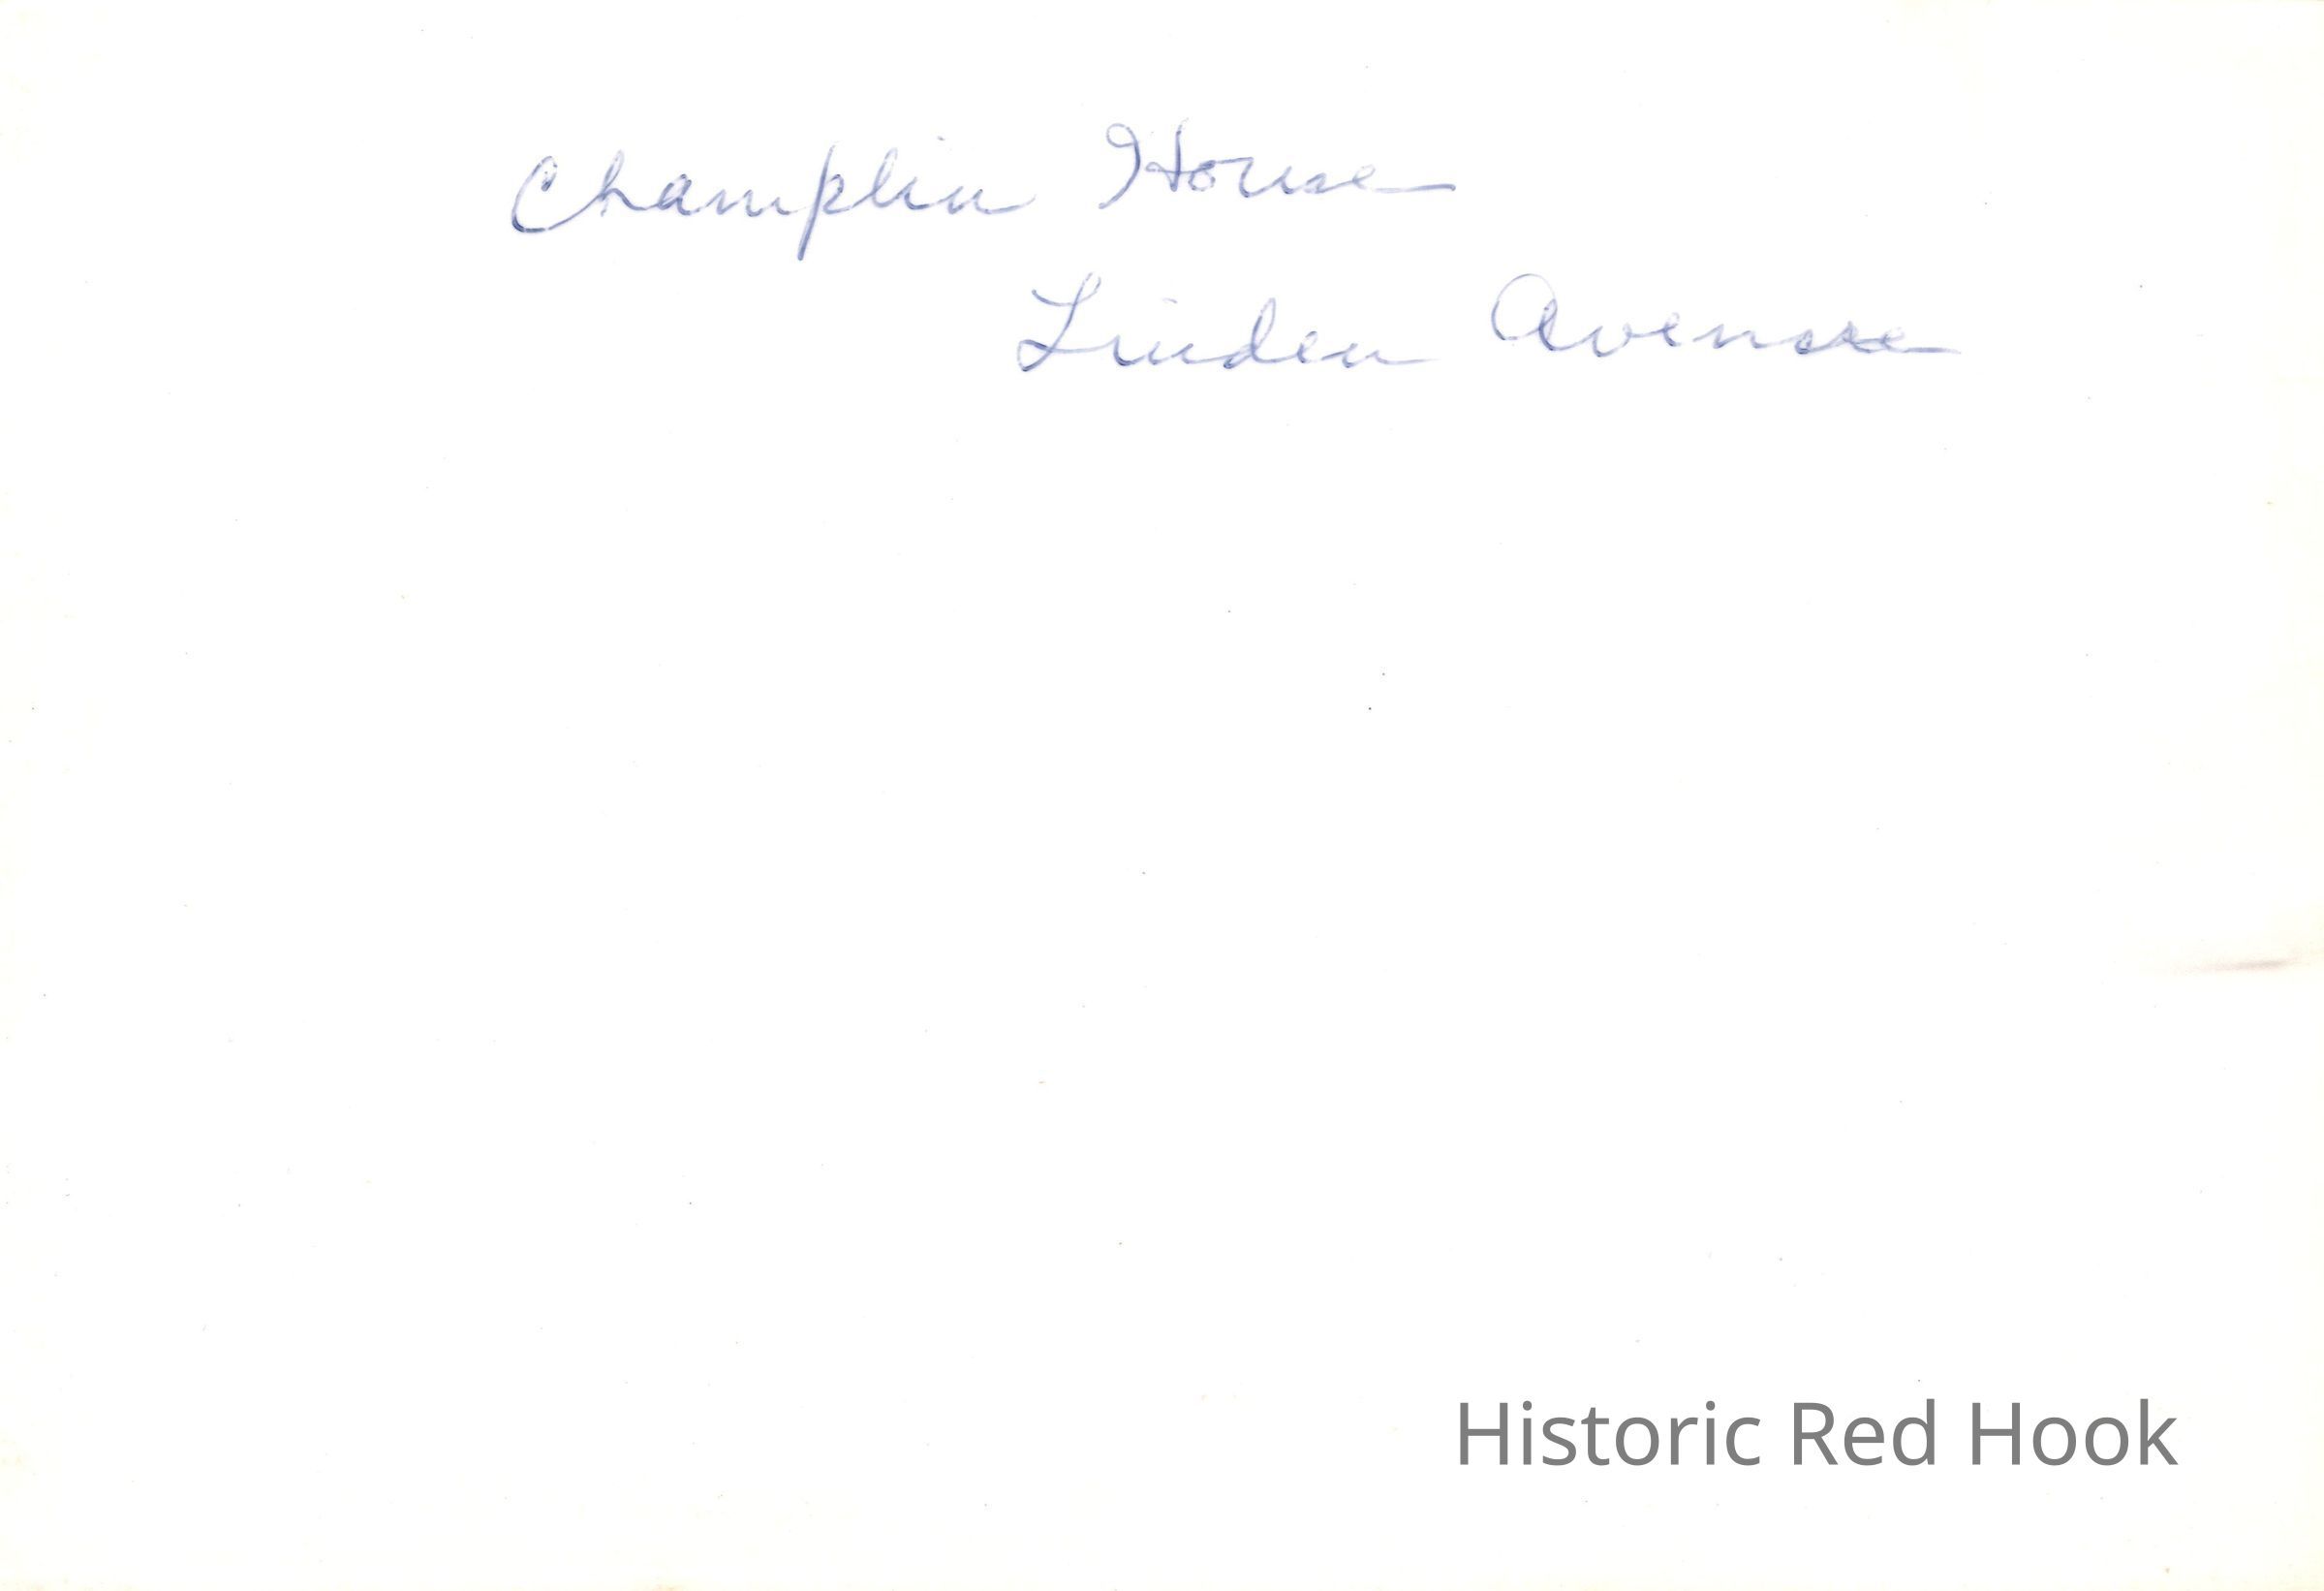 Champlin House
Linden Avenue
Historic Red Hook